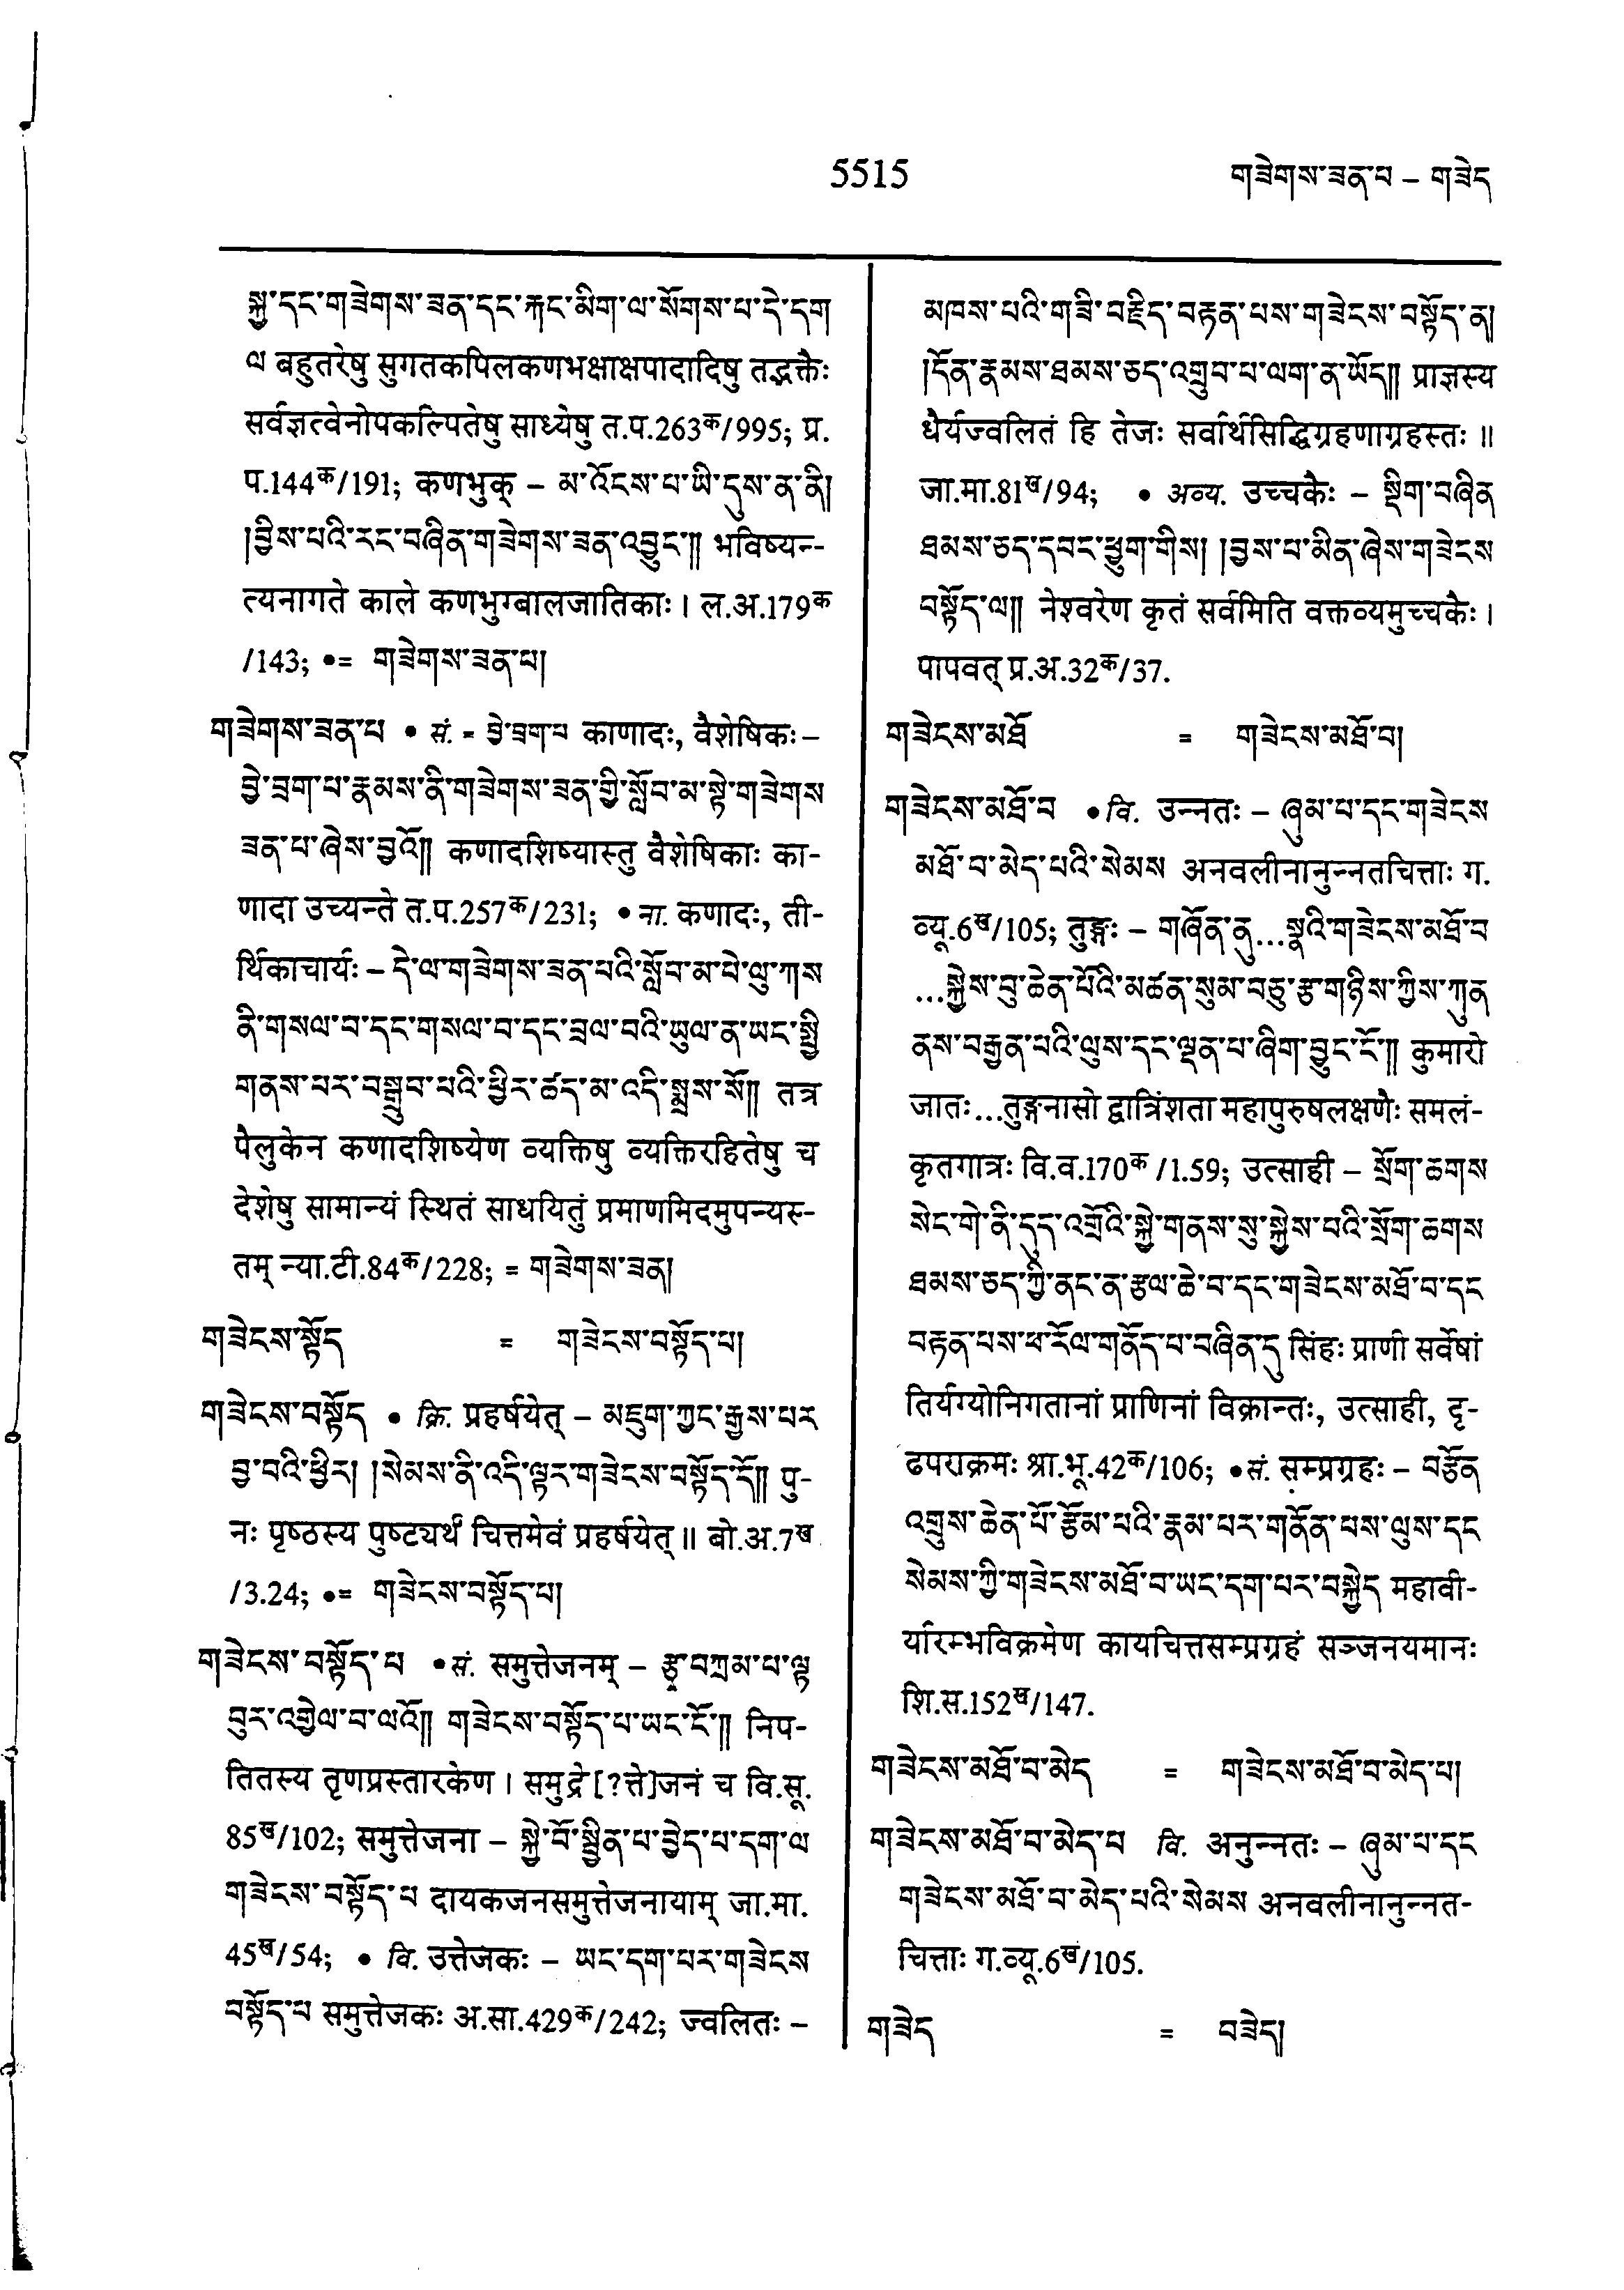 5515
གཟེགས་ཟན་པ – གཟེད
སྐྱ་དང་གཟེགས་ཟན་དང་རྐང་མིག་ལ་སོགས་པ་དེ་དག
ལ बहुतरेषु सुगतकपिलकणभक्षाक्षपादादिषु तद्भक्तैः
सर्वज्ञत्वेनोपकल्पितेषु साध्येषु त.प.263क/995; प्र.
प.144क/191; कणभुक् – མ་འོངས་པ་ཡི་དུས་ན་ནི།
།བྱིས་པའི་རང་བཞིན་གཟེགས་ཟན་འབྱུང་།། भविष्यन्-
त्यनागते काले कणभुग्बालजातिकाः। ल.अ.179क
/143; •= གཟེགས་ཟན་པ།
གཟེགས་ཟན་པ • सं. = བྱེ་བྲག་པ काणादः, वैशेषिकः –
བྱེ་བྲག་པ་རྣམས་ནི་གཟེགས་ཟན་གྱི་སློབ་མ་སྟེ་གཟེགས
ཟན་པ་ཞེས་བྱའོ།། कणादशिष्यास्तु वैशेषिकाः का-
णादा उच्यन्ते त.प.257क/231; • ना. कणादः, ती-
र्थिकाचार्यः – དེ་ལ་གཟེགས་ཟན་པའི་སློབ་མ་པེ་ལུ་ཀས
ནི་གསལ་བ་དང་གསལ་བ་དང་བྲལ་བའི་ཡུལ་ན་ཡང་སྤྱི
གནས་པར་བསྒྲུབ་པའི་ཕྱིར་ཚད་མ་འདི་སྨྲས་སོ།། तत्र
पैलुकेन कणादशिष्येण व्यक्तिषु व्यक्तिरहितेषु च
देशेषु सामान्यं स्थितं साधयितुं प्रमाणमिदमुपन्यस्-
तम् न्या.टी.84क/228; = གཟེགས་ཟན།
གཟེངས་སྟོད = གཟེངས་བསྟོད་པ།
གཟེངས་བསྟོད • क्रि. प्रहर्षयेत् – མཇུག་ཀྱང་རྒྱས་པར
བྱ་བའི་ཕྱིར། །སེམས་ནི་འདི་ལྟར་གཟེངས་བསྟོད་དོ།། पु-
नः पृष्ठस्य पुष्ट्यर्थं चित्तमेवं प्रहर्षयेत्॥ बो.अ.7ख
/3.24; •= གཟེངས་བསྟོད་པ།
གཟེངས་བསྟོད་པ •सं. समुत्तेजनम् – རྩྭ་བཀྲམ་པ་ལྟ
བུར་འགྱེལ་བ་ལའོ།། གཟེངས་བསྟོད་པ་ཡང་ངོ་།། निप-
तितस्य तृणप्रस्तारकेण। समुद्रे [?त्ते]जनं च वि.सू.
85ख/102; समुत्तेजना – སྐྱེ་བོ་སྦྱིན་པ་བྱེད་པ་དག་ལ
གཟེངས་བསྟོད་པ दायकजनसमुत्तेजनायाम् जा.मा.
45ख/54; • वि. उत्तेजकः – ཡང་དག་པར་གཟེངས
བསྟོད་པ समुत्तेजकः अ.सा.429क/242; ज्वलितः –
མཁས་པའི་གཟི་བརྗིད་བརྟན་པས་གཟེངས་བསྟོད་ན།
།དོན་རྣམས་ཐམས་ཅད་འགྲུབ་པ་ལག་ན་ཡོད།། प्राज्ञस्य
धैर्यज्वलितं हि तेजः सर्वार्थसिद्धिग्रहणाग्रहस्तः॥
जा.मा.81ख/94; • अव्य. उच्चकैः – སྡིག་བཞིན
ཐམས་ཅད་དབང་ཕྱུག་གིས། །བྱས་པ་མིན་ཞེས་གཟེངས
བསྟོད་ལ།། नेश्वरेण कृतं सर्वमिति वक्तव्यमुच्चकैः।
पापवत् प्र.अ.32क/37.
གཟེངས་མཐོ = གཟེངས་མཐོ་བ།
གཟེངས་མཐོ་བ •वि. उन्नतः – ཞུམ་པ་དང་གཟེངས
མཐོ་བ་མེད་པའི་སེམས अनवलीनानुन्नतचित्ताः ग.
व्यू.6ख/105; तुङ्गः – གཞོན་ནུ...སྣའི་གཟེངས་མཐོ་བ
...སྐྱེས་བུ་ཆེན་པོའི་མཚན་སུམ་བཅུ་རྩ་གཉིས་ཀྱིས་ཀུན
ནས་བརྒྱན་པའི་ལུས་དང་ལྡན་པ་ཞིག་བྱུང་ངོ་།། कुमारो
जातः...तुङ्गनासो द्वात्रिंशता महापुरुषलक्षणैः समलं-
कृतगात्रः वि.व.170क/1.59; उत्साही – སྲོག་ཆགས
སེང་གེ་ནི་དུད་འགྲོའི་སྐྱེ་གནས་སུ་སྐྱེས་པའི་སྲོག་ཆགས
ཐམས་ཅད་ཀྱི་ནང་ན་རྩལ་ཆེ་བ་དང་གཟེངས་མཐོ་བ་དང
བརྟན་པས་ཕ་རོལ་གནོད་པ་བཞིན་དུ सिंहः प्राणी सर्वेषां
तिर्यग्योनिगतानां प्राणिनां विक्रान्तः, उत्साही, दृ-
ढपराक्रमः श्रा.भू.42क/106; •सं. सम्प्रग्रहः – བརྩོན
འགྲུས་ཆེན་པོ་རྩོམ་པའི་རྣམ་པར་གནོན་པས་ལུས་དང
སེམས་ཀྱི་གཟེངས་མཐོ་བ་ཡང་དག་པར་བསྐྱེད महावी-
र्यारम्भविक्रमेण कायचित्तसम्प्रग्रहं सञ्जनयमानः
शि.स.152ख/147.
གཟེངས་མཐོ་བ་མེད = གཟེངས་མཐོ་བ་མེད་པ།
གཟེངས་མཐོ་བ་མེད་པ वि. अनुन्नतः – ཞུམ་པ་དང
གཟེངས་མཐོ་བ་མེད་པའི་སེམས अनवलीनानुन्नत-
चित्ताः ग.व्यू.6ख/105.
གཟེད = བཟེད།